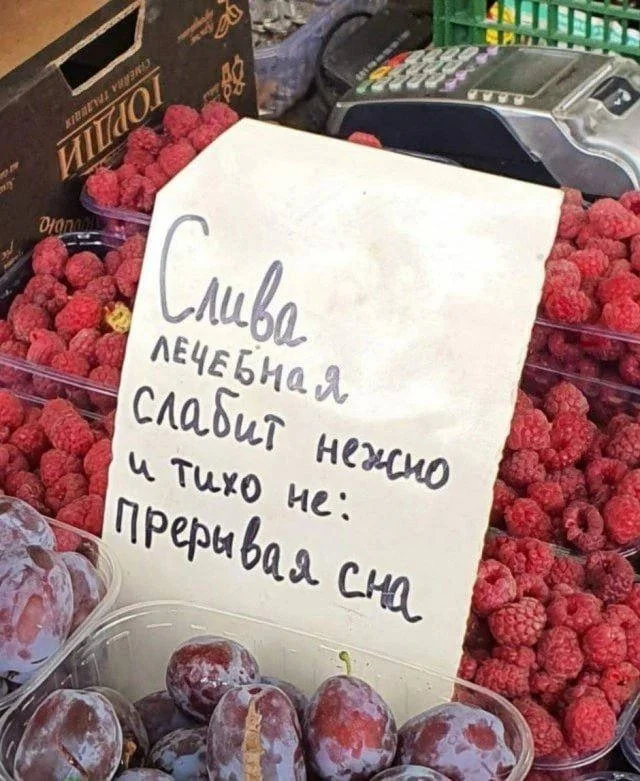 ГОРДІЙ
СІМЕЙНА ТРАДИЦІЯ
Слива
лечебная
слабит нежно
и тихо не:
прерывая сна